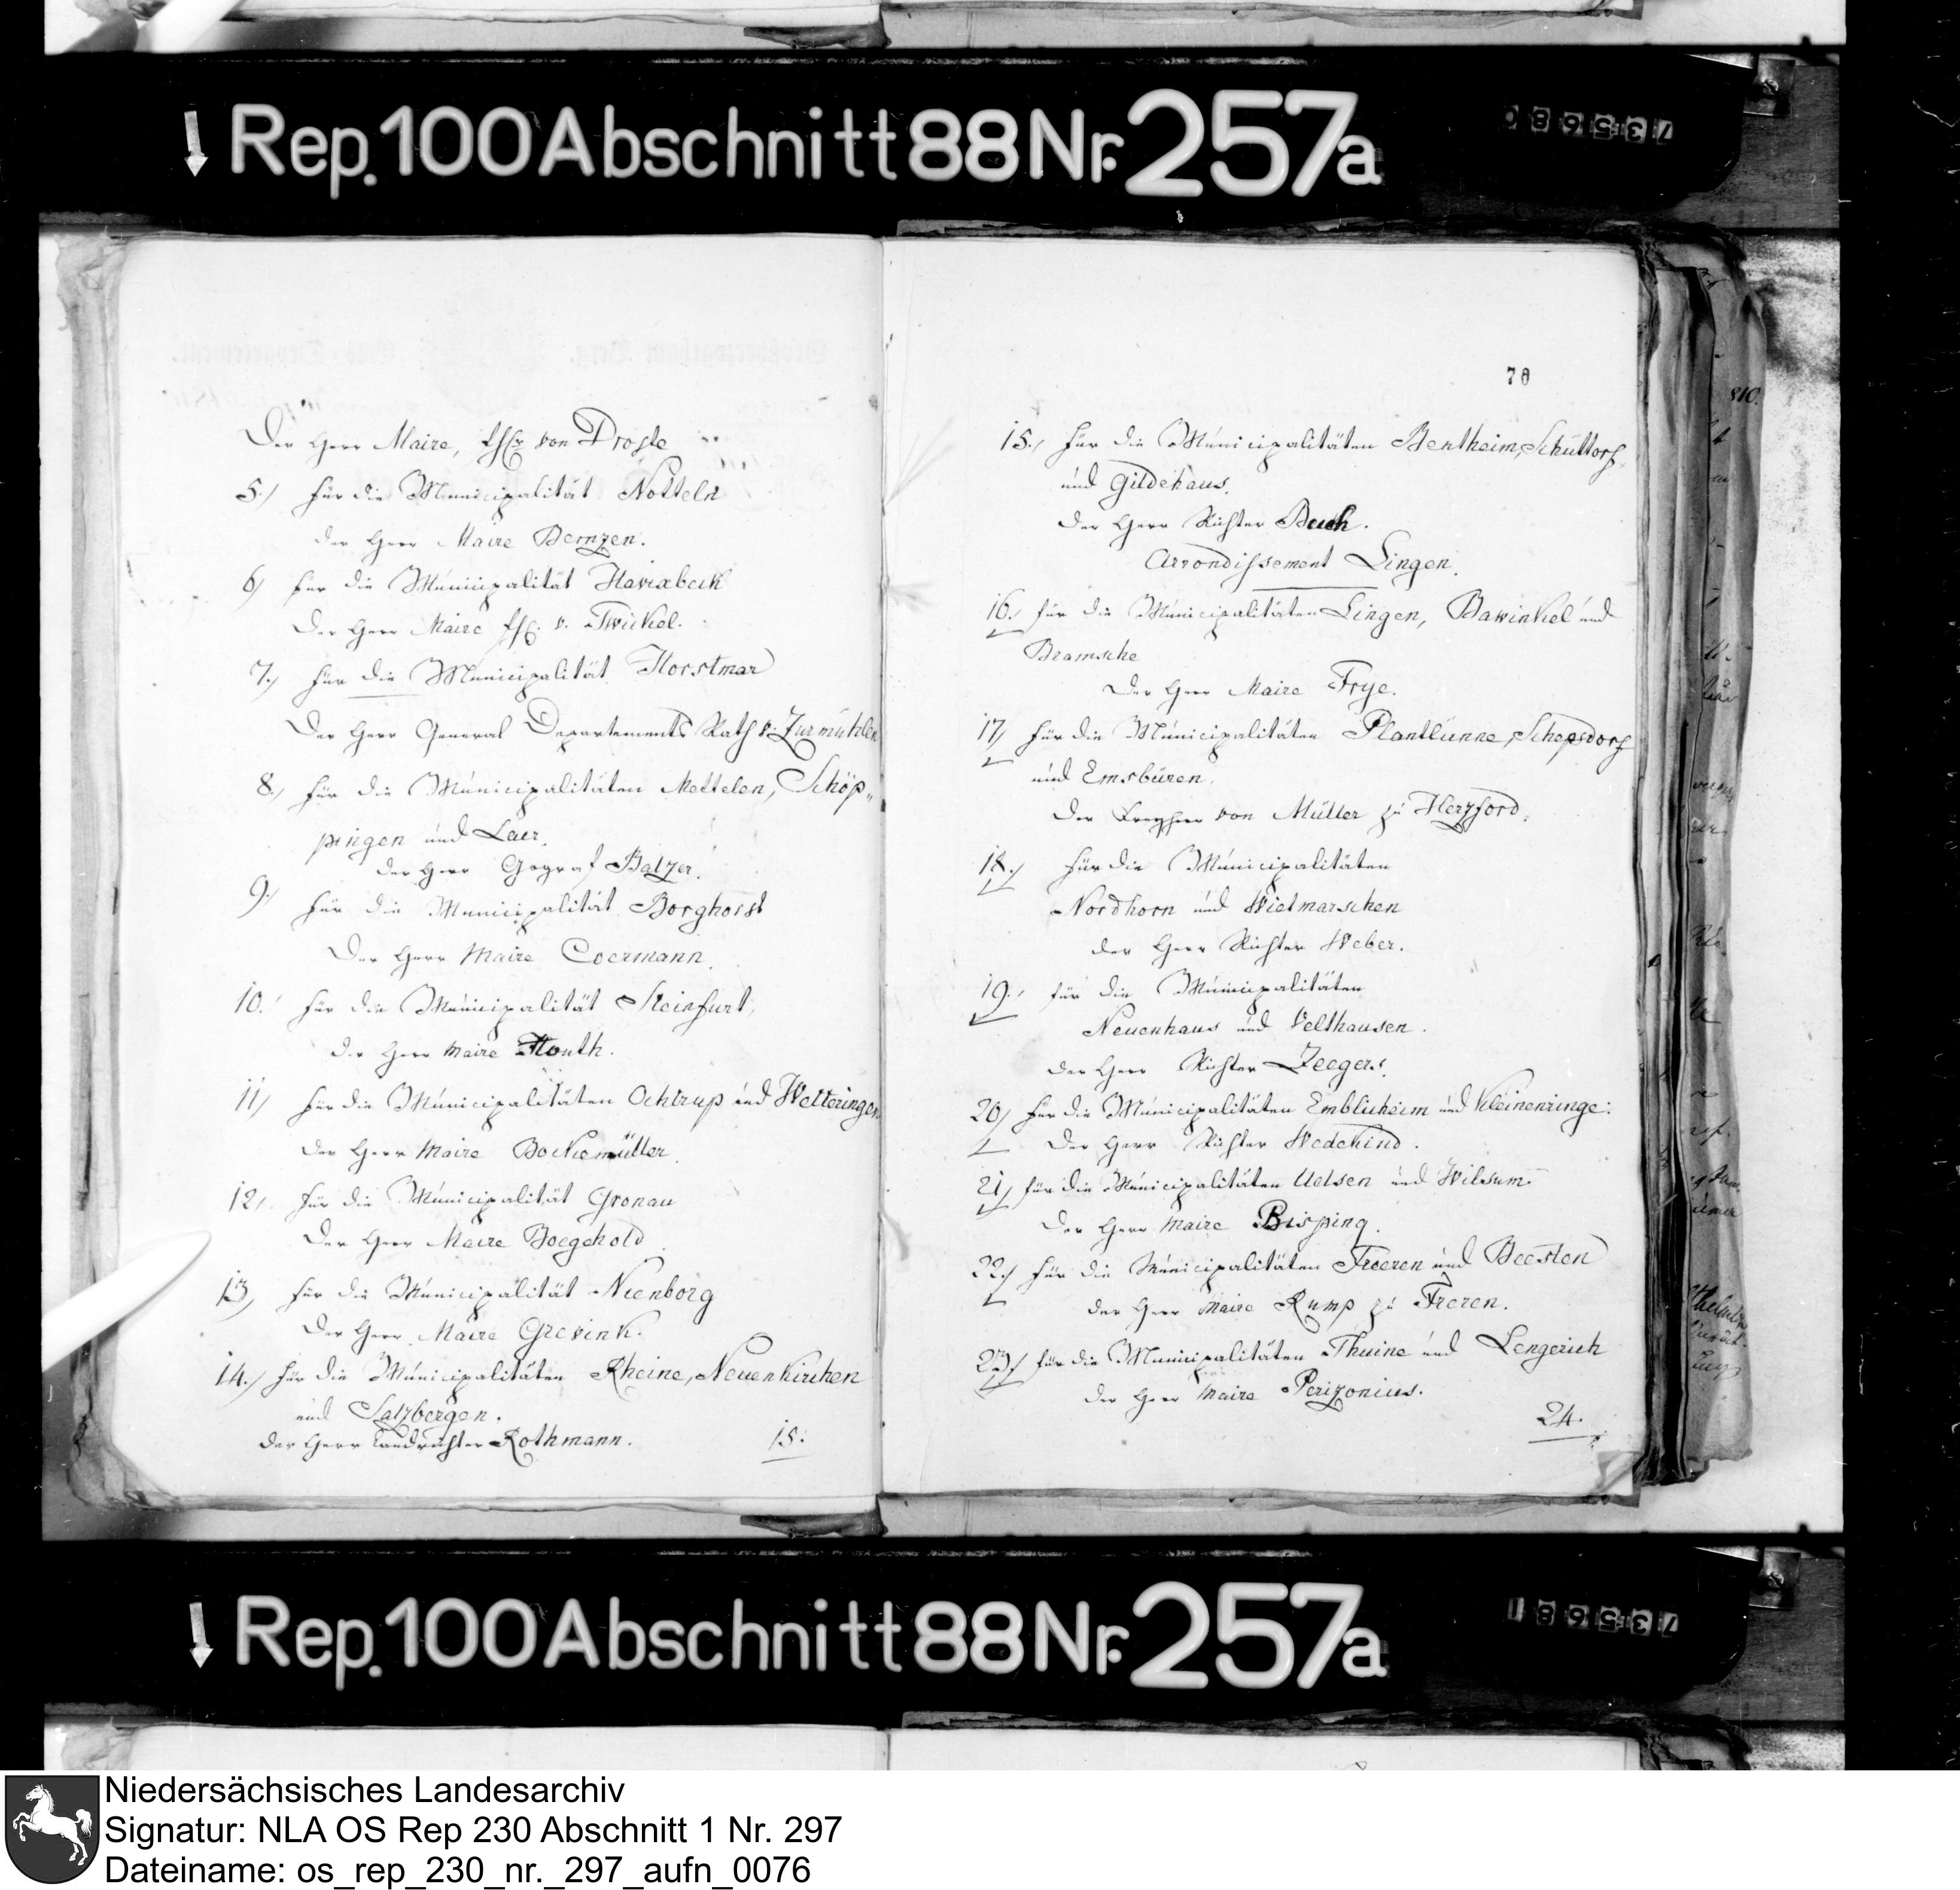 Rep. 100 Abschnitt 88 Nr. 257a
735680
Der Herr Maire, von Droste
5./ für die Municipalität Notteln
der Herr Maire Bernzen.
6/ für die Municipalität Havixbeck
Der Herr Maire v. Twickel.
7./ für die Municipalität Horstmar
Der Herr General Departements Rath v. Zurmühlen
8./ für die Municipalitäten Mettelen, Schöp„
pingen und Laer.
der Herr Gograf Balzer.
9./ für die Municipalität Borghorst
Der Herr Maire Coermann.
10./ für die Municipalität Steinfurt,
der Herr Maire Houth.
11/ für die Municipalitäten Ochtrup und Wetteringen
Der Herr Maire Bockemüller.
12/. für die Municipalität Gronau
Der Herr Maire Boegehold
13/ für die Municipalität Nienborg
Der Herr Maire Grevink.
14./ für die Municipalitäten Rheine, Neuenkirchen
und Salzbergen.
der Herr Landrichter Rothmann.
15.
70
15./ für die Municipalitäten Bentheim, Schüttorf
und Gildehaus.
der Herr Richter Buch.
Arrondissement Lingen.
16./ für die Municipalitäten Lingen, Bawinkel und
Bramsche
Der Herr Maire Frye.
17/ für die Municipalitäten Plantlünne, Schepsdorf
und Emsbüren.
Der Freyherr von Müller zu Herzford.
18./ für die Municipalitäten
Nordhorn und Wietmarschen
der Herr Richter Weber.
19./ für die Municipalitäten
Neuenhaus und Velthausen.
der Herr Richter Zeegers.
20/ für die Municipalitäten Emblicheim und Kleinenringe:
Der Herr Richter Wedekind.
21/ für die Municipalitäten Uelsen und Wilsum
Der Herr Maire Bisping.
22./ für die Municipalitäten Freeren und Beesten
der Herr Maire Rump zu Freren.
23/ für die Municipalitäten Thuine und Lengerich
der Herr Maire Perizonius.
24.
810.
Rep. 100 Abschnitt 88 Nr. 257a
735681
Niedersächsisches Landesarchiv
Signatur: NLA OS Rep 230 Abschnitt 1 Nr. 297
Dateiname: os_rep_230_nr._297_aufn_0076